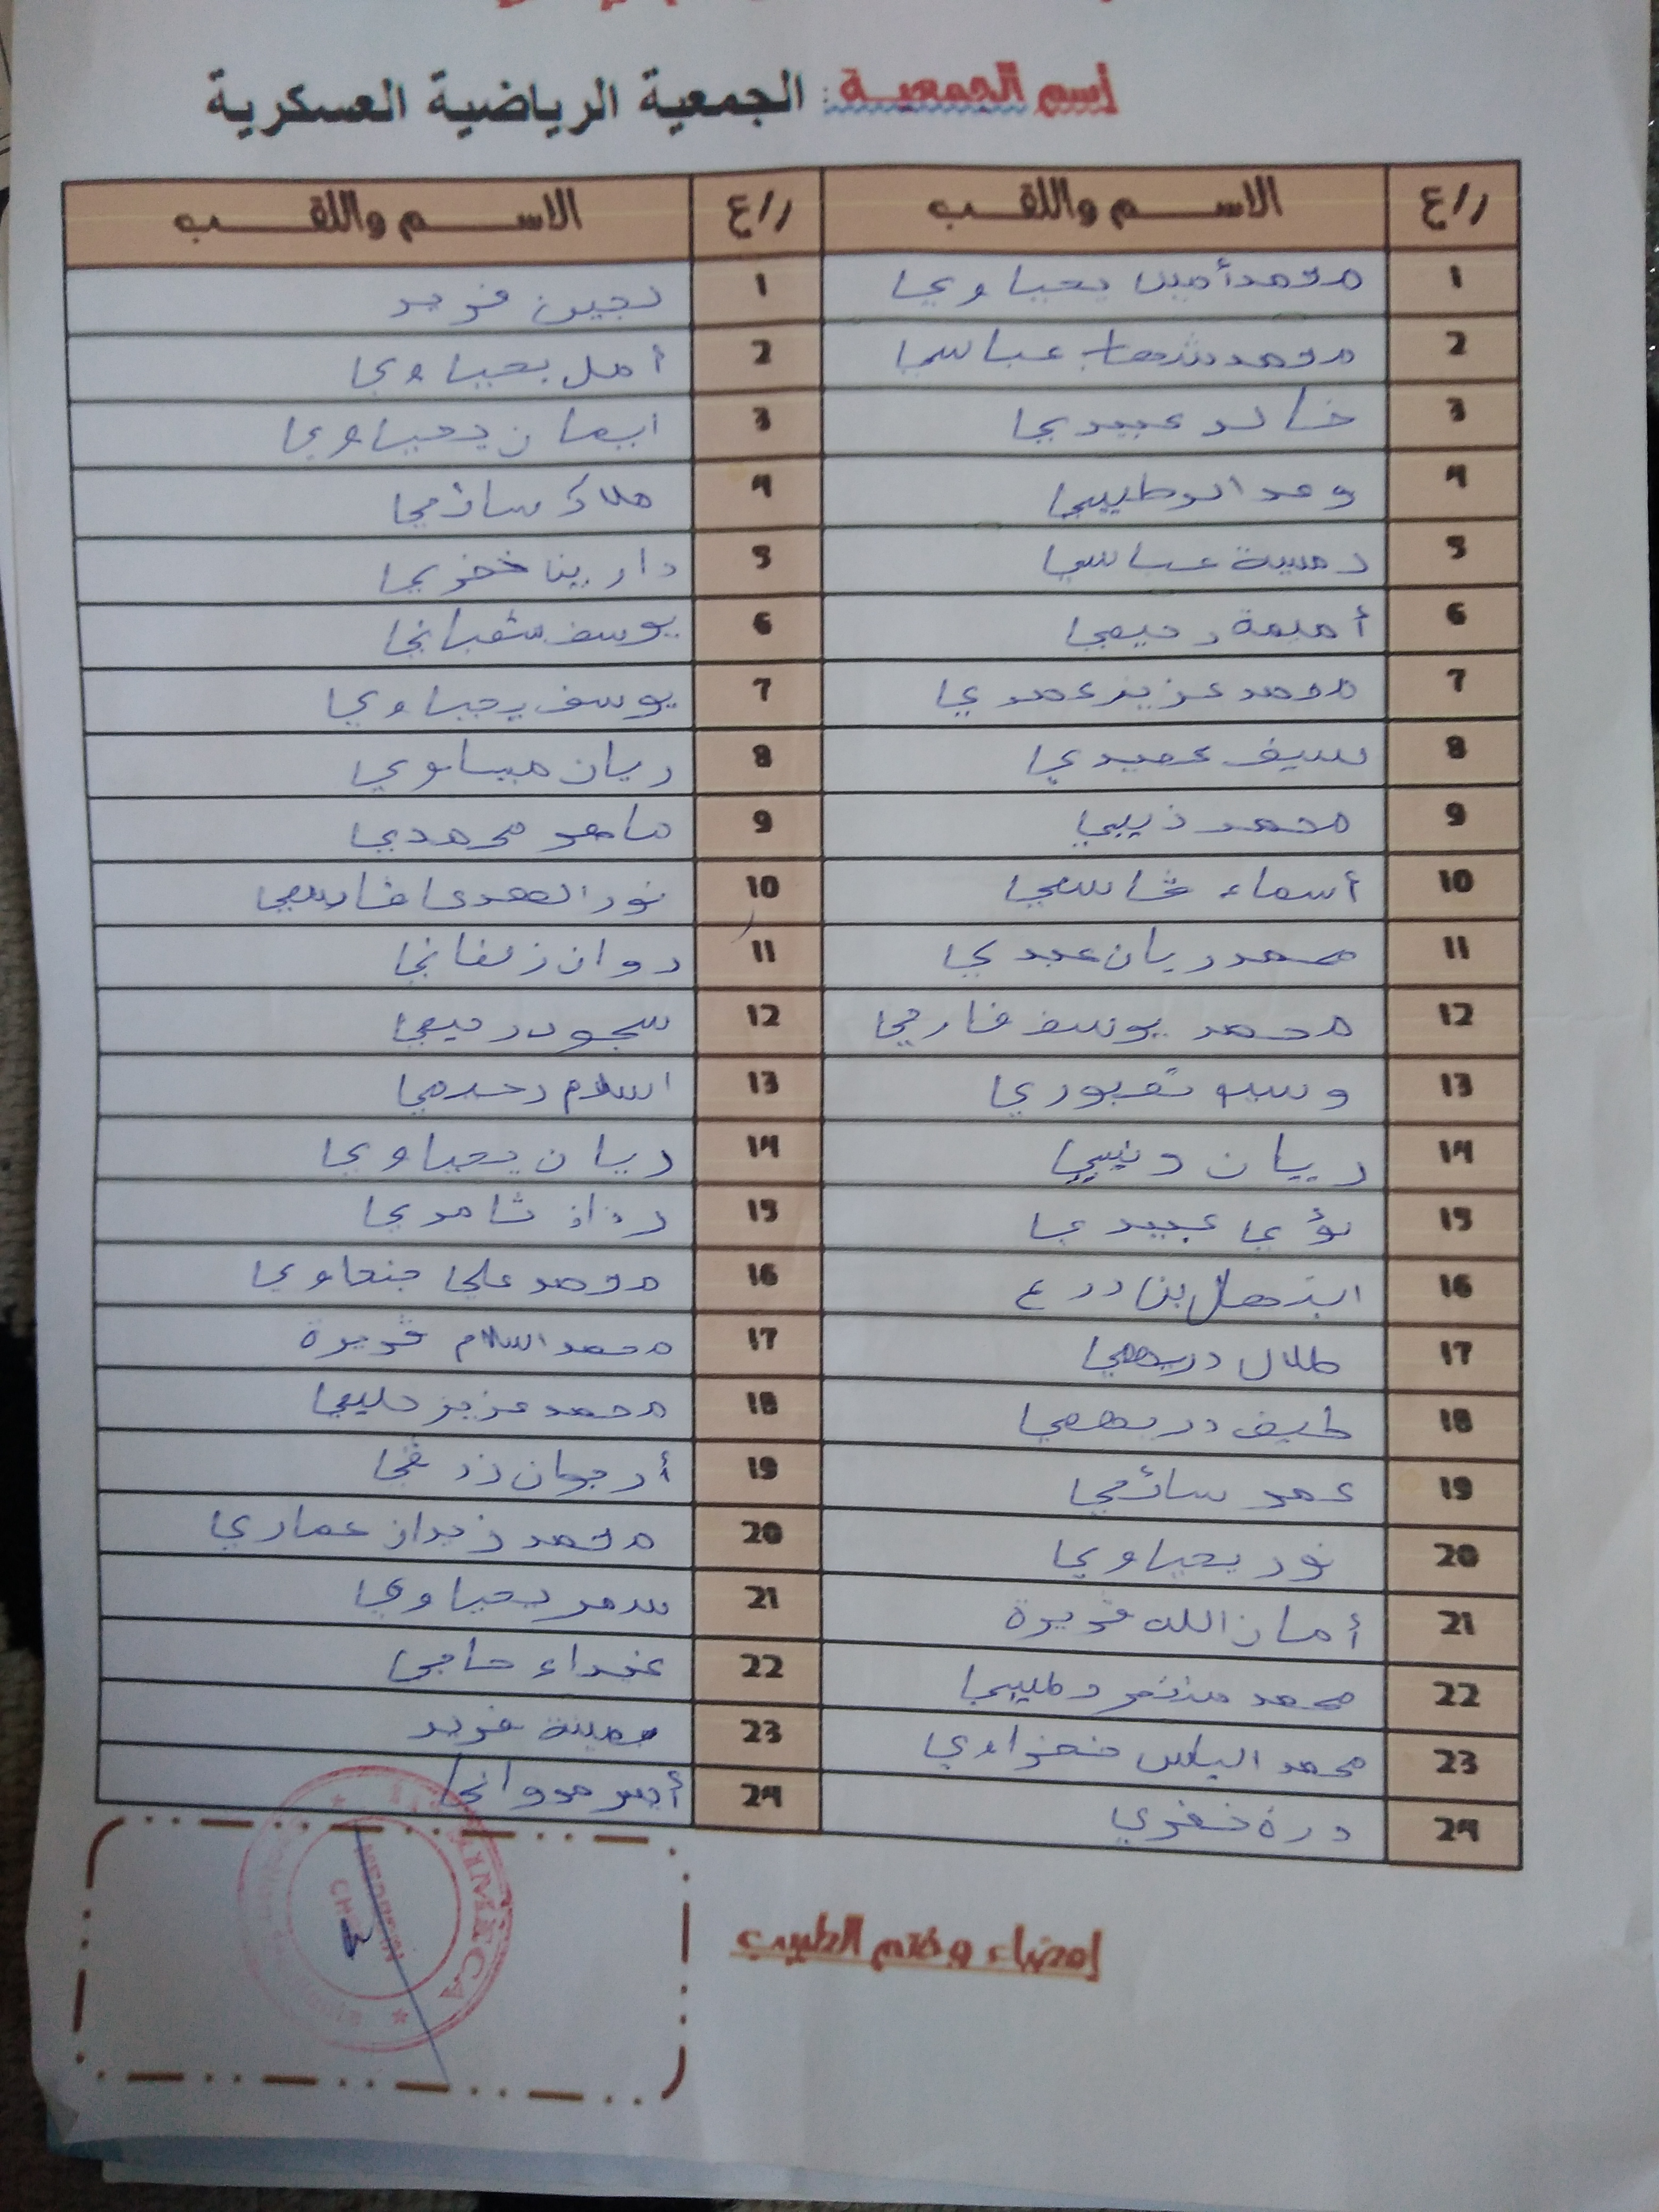 إسم الجمعية : الجمعية الرياضية العسكرية
ر/ع الاسم واللقب ر/ع الاسم واللقب
1 محمد أمين يحياوي 1 لجين فريد
2 محمد شهاب عباسي 2 أمل يحياوي
3 خالد عبيدي 3 ايمان يحياوي
4 وعد الرطيبي 4 ملاك سائمي
5 دمسة عباسي 5 دارين خضري
6 أميمة رحيمي 6 يوسف شعباني
7 محمد عزيز عمدي 7 يوسف يحياوي
8 سيف عميدي 8 ريان ميساوي
9 محمد ذيبي 9 ماهر محمدي
10 أسماء قاسمي 10 نور الهدى قاسمي
11 محمد ريان عبدي 11 روان زلفاني
12 محمد يوسف فارحي 12 سجود رحيمي
13 تعبوري 13 اسلام رحيمي
14 ريان ذيبي 14 ريان يحياوي
15 لؤي عبيدي 15 رزان ثامري
16 ابتهال بن درع 16 محمد علي جنحاوي
17 طلال دريهمي 17 محمد اسلام قريرة
18 طيف دريهمي 18 محمد عزيز حليمي
19 عمر سائمي 19 أرجوان زرقي
20 نور يحياوي 20 محمد نزيدان عماري
21 أمان الله قريرة 21 سمر يحياوي
22 محمد منتصر 22 غيداء حاجي
23 محمد الياس نفزاوي 23 يمينة فريد
24 درة خضري 24 أيسر مرواني
إمضاء وختم الطبيب